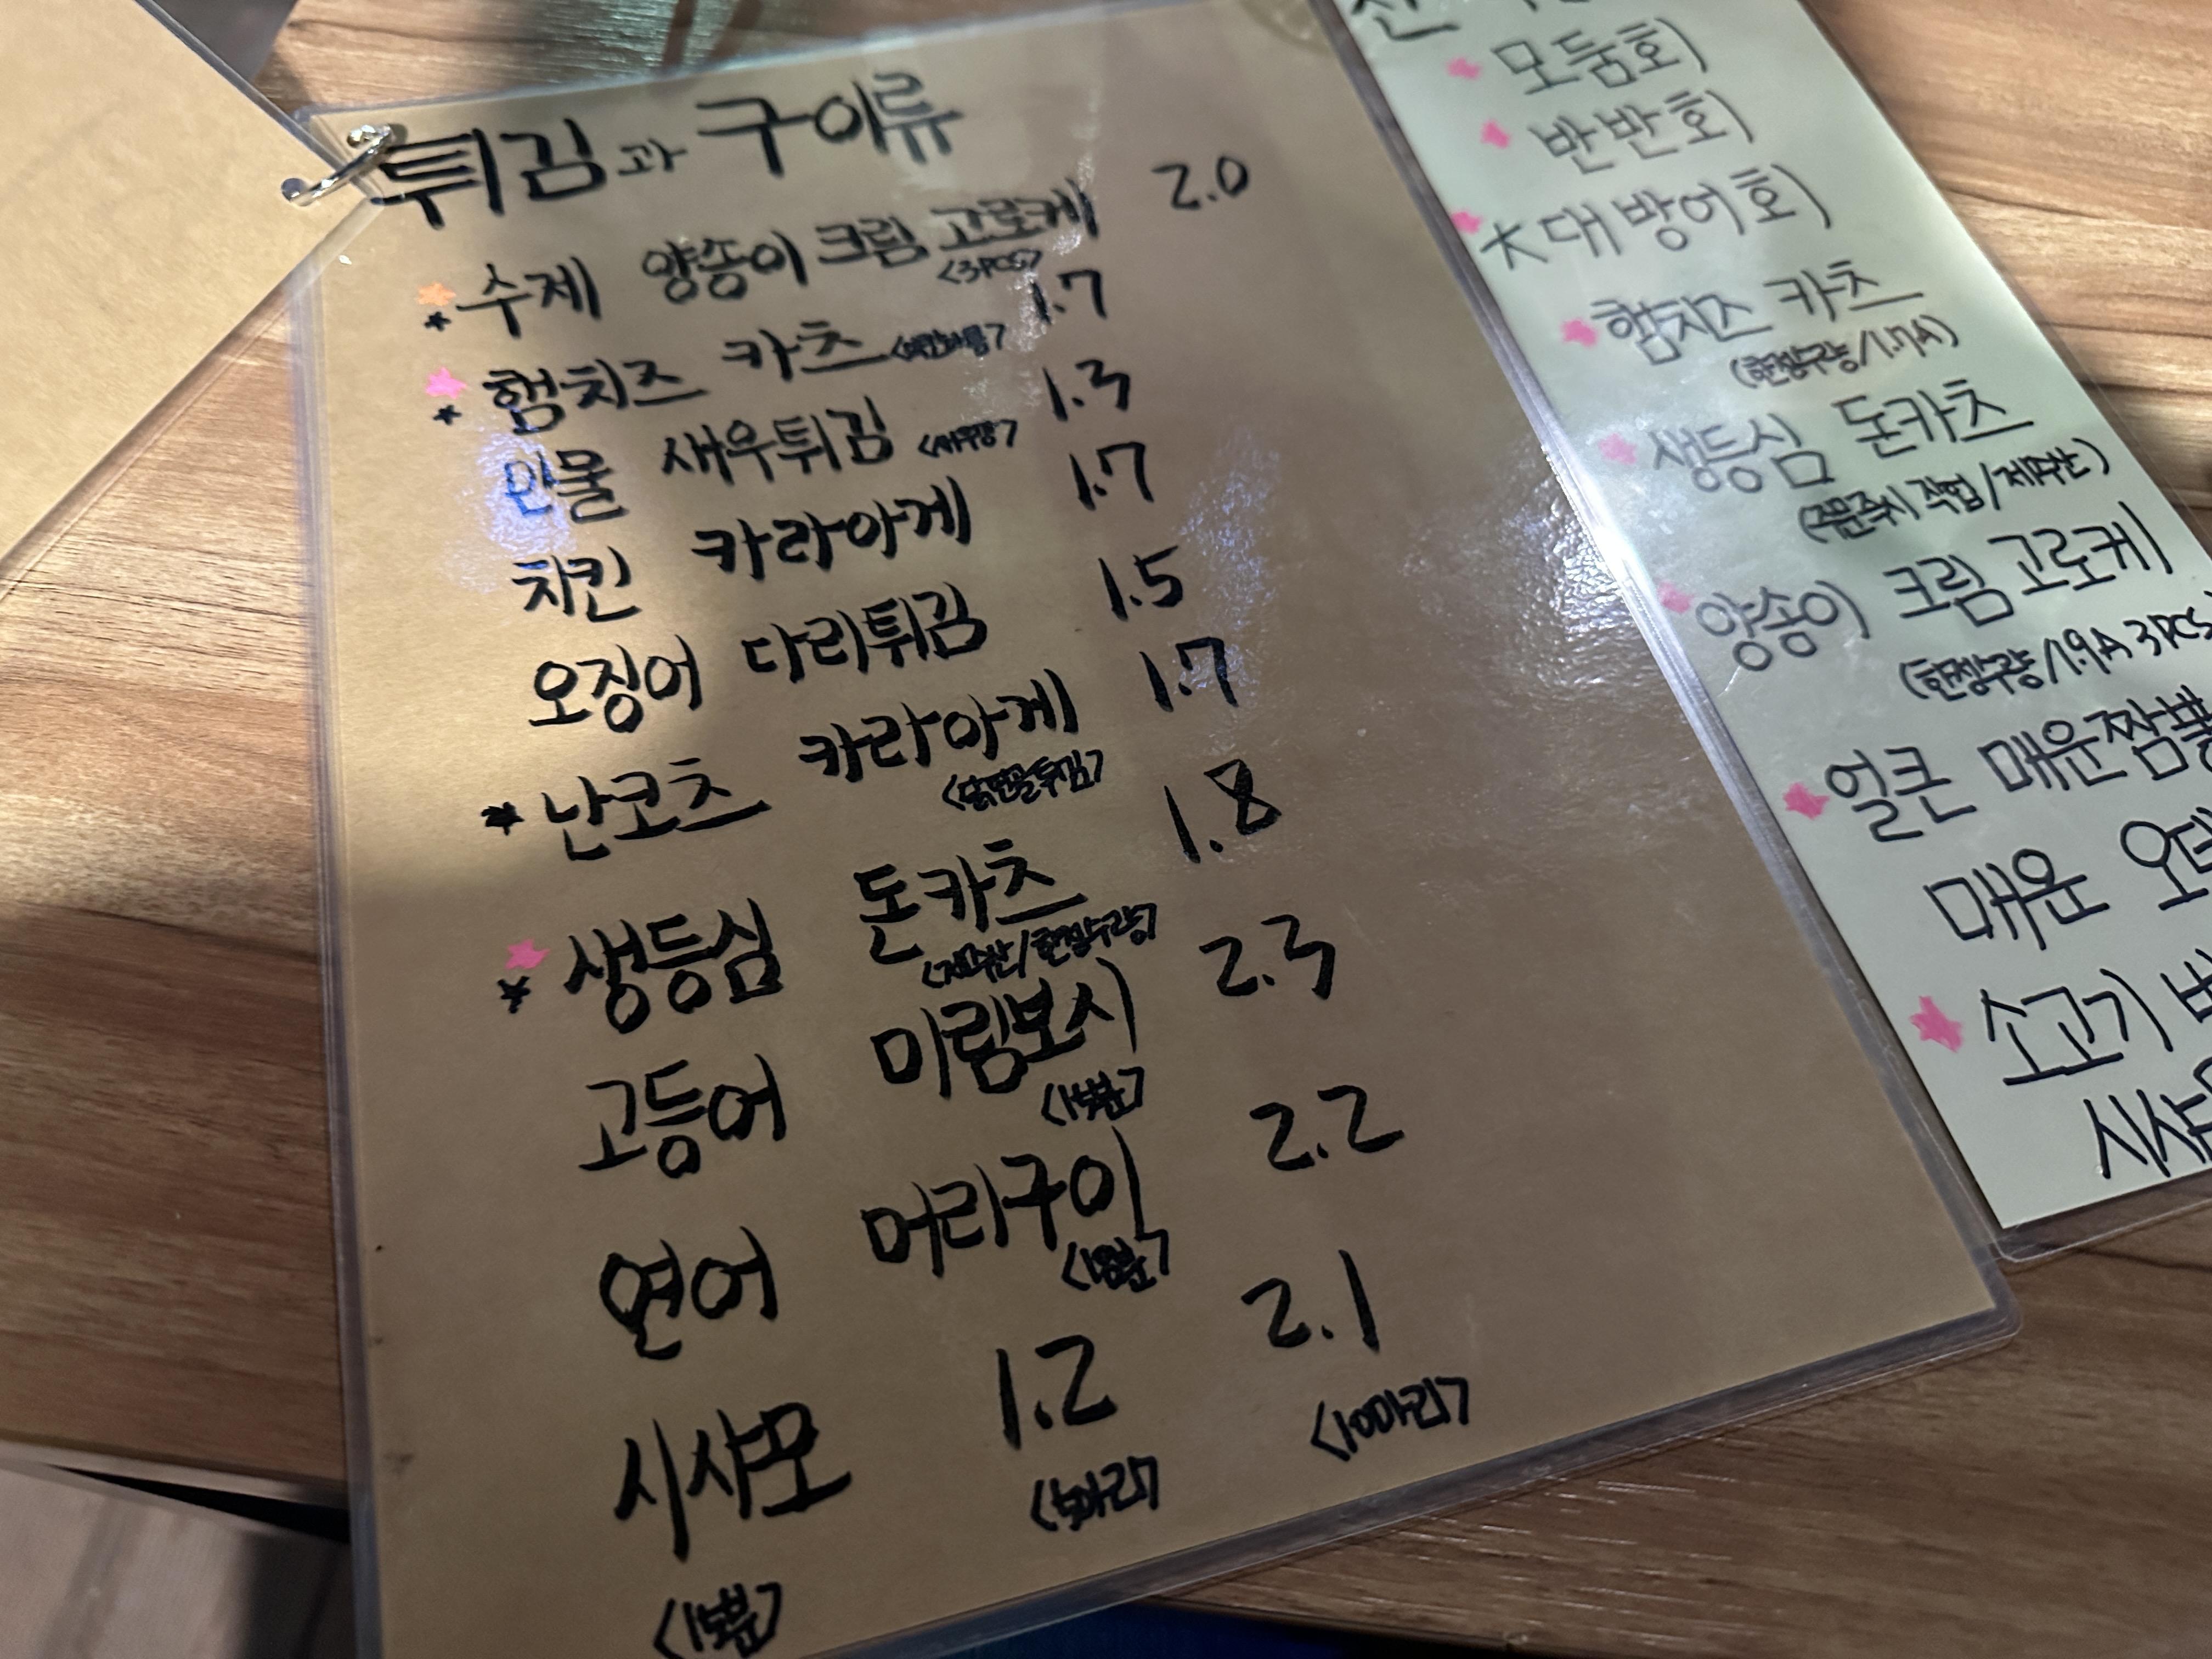 튀김과 구이류
수제 양송이 크림 고로케 2.0
<3PCS>
햄치즈 카츠 1.7
민물 새우튀김 <새우깡> 1.3
치킨 카라아게 1.7
오징어 다리튀김 1.5
난코츠 카라아게 1.7
<닭연골튀김>
생등심 돈카츠 1.8
<제주산/한정수량>
고등어 미림보시 2.3
<15분>
연어 머리구이 2.2
시샤모 1.2 2.1
<5마리> <10마리>
<15분>
모둠회
반반회
大대방어회
햄치즈 카츠
(한정수량/1.7A)
생등심 돈카츠
(주문즉시 작업/제주산)
양송이 크림 고로케
(한정수량/1.9A 3PCS
얼큰 매운짬뽕
매운 오뎅
소고기
시샤모